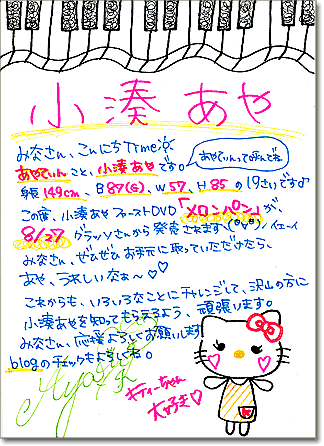 小湊 あや
みなさん、こんにちTime☆
あやてぃんこと、小湊あやです。
あやてぃんって呼んでね
身長149cm、B87(G)、W57、H85の19さいです♪
この度、小湊あやファーストDVD「メロンパン」が、
8/27 グラッソさんから発売されます＼(^∇^)/イェーイ
みなさん、ぜひぜひお手元に取っていただけたら、
あや、うれしいなぁ〜♡♡
これからも、いろいろなことにチャレンジして、沢山の方に
小湊あやを知ってもらえるよう、頑張ります。
みなさん、応援よろしくお願いします
blogのチェックもよろしくね。
キティーちゃん
大好き♡